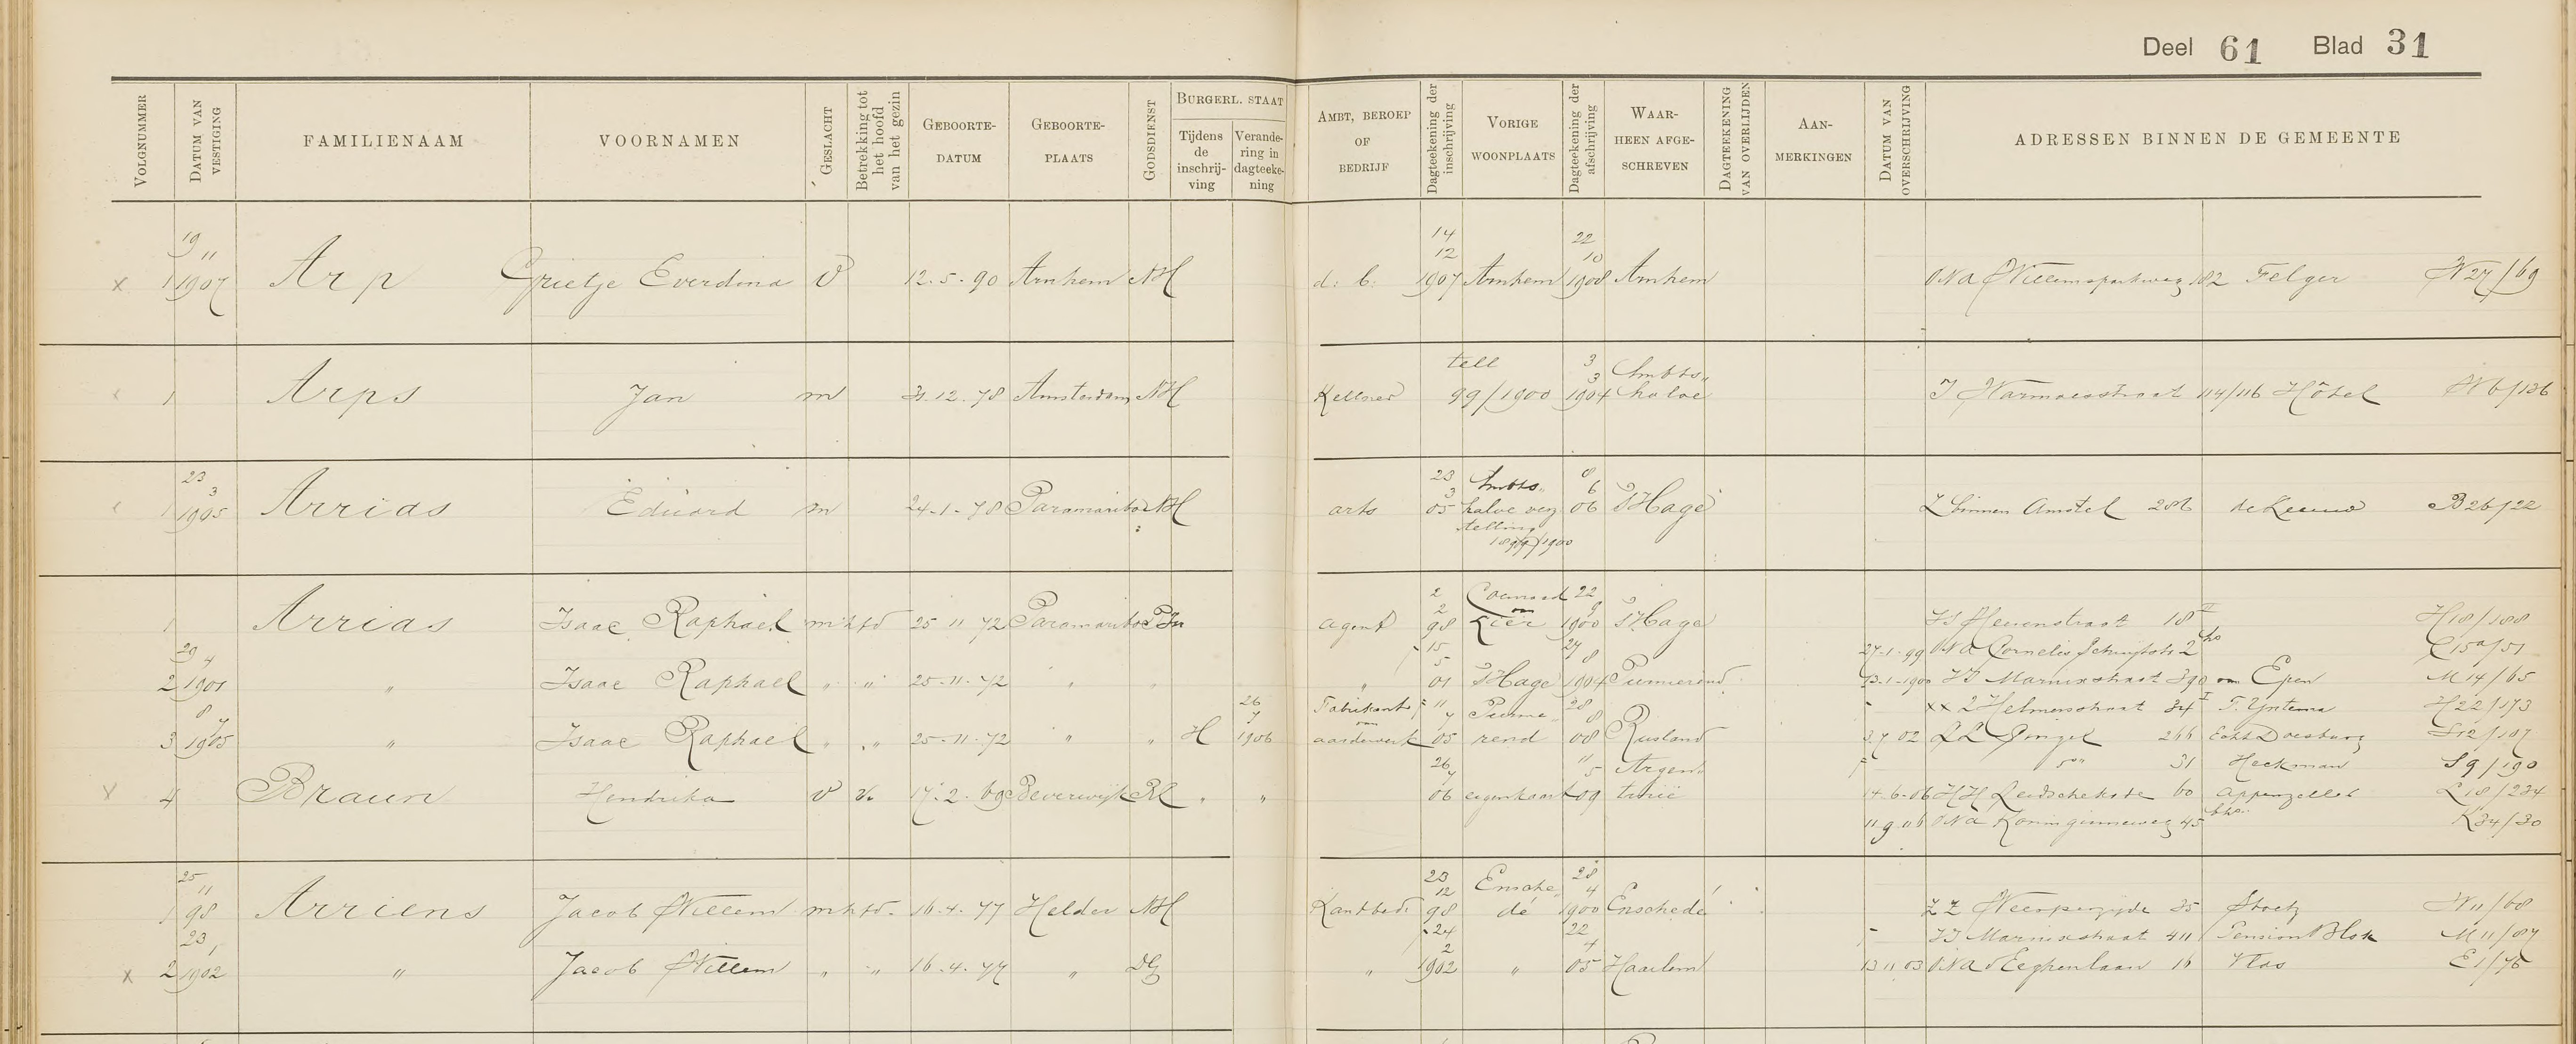 Deel 61 Blad 31
VOLGNUMMER
DATUM VAN VESTIGING
FAMILIENAAM
VOORNAMEN
GESLACHT
Betrekking tot het hoofd van het gezin
GEBOORTE-DATUM
GEBOORTE-PLAATS
GODSDIENST
BURGERL. STAAT
Tijdens de inschrij-ving
Verande-ring in dagteeke-ning
AMBT, BEROEP OF BEDRIJF
Dagteekening der inschrijving
VORIGE WOONPLAATS
Dagteekening der afschrijving
WAAR-HEEN AFGE-SCHREVEN
DAGTEEKENING VAN OVERLIJDEN
AAN-MERKINGEN
DATUM VAN OVERSCHRIJVING
ADRESSEN BINNEN DE GEMEENTE
19 11 14 12 22 10
x 1 1907 Arp Grietje Everdina V 12-5-90 Arnhem NH d: b: 1907 Arnhem 1908 Arnhem Willemsparkweg 182 Felger N27/69
tell 3 3 Ambts
1 Arps Jan m 31.12.78 Amsterdam NH Kellner 99/1900 1904 halve Warmoesstraat 114/116 Hôtel N6/136
23 3 23 3 Ambts 8 6
1 1905 Arrias Eduard m 24-1-78 Paramaribo NH arts 05 halve 06 's Hage binnen Amstel 286 de Leeuw B26/22
telling
1899/1900
2 2 22 9
1 Arrias Isaac Raphael m hfd 25 11 72 Paramaribo agent 98 Lier 1900 's Hage 18 II H18/188
29 4 15 5 27 8 27-1-99 Cornelis 2 ho C15a/51
2 1901 " Isaac Raphael " " 25-11-72 " " " 01 's Hage 1904 Purmerend 13-1-1900 Marnixstraat 390 Epen M14/65
8 7 26 7 Fabrikant van 11 7 Purme 28 8 2 Helmersstraat 34 I T. Yntema H22/173
3 1905 " Isaac Raphael " " 25-11-72 " " H 1906 aardewerk 05 rend 08 Rusland 3 7 02 Singel 266 Doesburg S12/107
26 7 11 5 Argen 31 Heckman S9/190
x 4 Braun Hendrika V v. 17-2-69 Beverwijk RC " " 06 eigen kaart 09 tinië 14-6-06 Leidschekade 60 Appenzeller L18/234
11 9 06 Koninginneweg 45 bhs. K34/30
25 11 23 12 Ensche 28 4
1 98 Arriens Jacob Willem m hfd. 16-4-77 Helder NH Kantbed: 98 dé 1900 Enschedé ZZ Weesperzijde 35 Stoetz N11/68
23 1 24 2 22 4 Marnixstraat 411 Pension Blok M11/87
x 2 1902 " Jacob Willem " " 16-4-77 " DG " 1902 " 05 Haarlem 13 11 03 v Eeghenlaan 16 Vlas E1/76